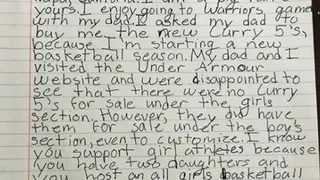 I enjoy going to Warriors games
with my dad. I asked my dad to
buy me the new Curry 5's,
because I'm starting a new
basketball season. My dad and I
visited the Under Armour
website and were disappointed to
see that there were no Curry
5's for sale under the girls
section. However, they did have
them for sale under the boy's
section, even to customize. I know
you support girl athletes because
you have two daughters and
you host an all girls basketball